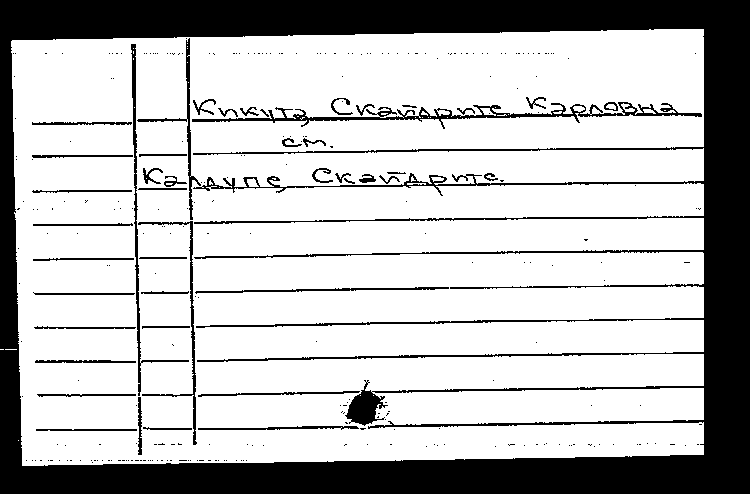 Кикута, Скайдрите Карловна
см.
Калдупе, Скайдрите.